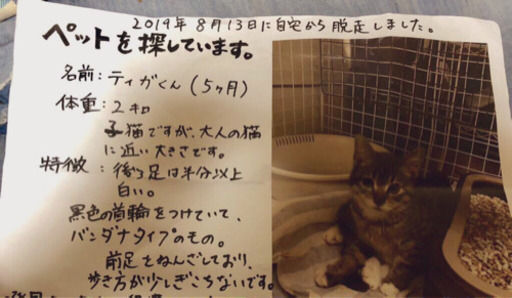 2019年8月13日に自宅から脱走しました。
ペットを探しています。
名前：ティガくん(5ヶ月)
体重：2キロ
子猫ですが、大人の猫
に近い大きさです。
特徴：後ろ足は半分以上
白い。
黒色の首輪をつけていて、
バンダナタイプのもの。
前足をねんざしており、
歩き方が少しぎこちないです。